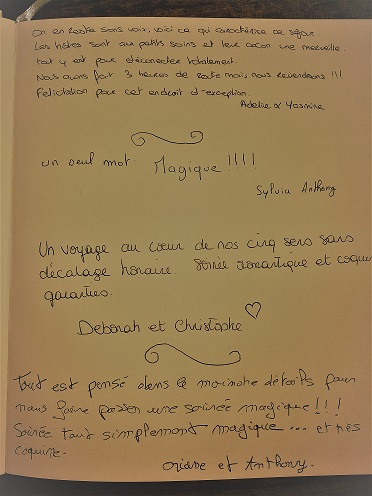 On en reste sans voix, voici ce qui caractérise ce séjour.
Les hôtes sont aux petits soins et leur cocon une merveille.
tout y est pour déconnecter totalement.
Nous avons fait 3 heures de route mais nous reviendrons !!!
Félicitation pour cet endroit d'exception.
Adeline & Yasmine
un seul mot: Magique !!!!
Sylvia Anthony
Un voyage au cœur de nos cinq sens sans
décalage horaire. Soirée romantique et coquine
garanties.
Deborah et Christophe
Tout est pensé dans le moindre détails pour
nous faire passer une soirée magique!!!
Soirée tout simplement magique ... et très
coquine.
Oriane et Anthony.